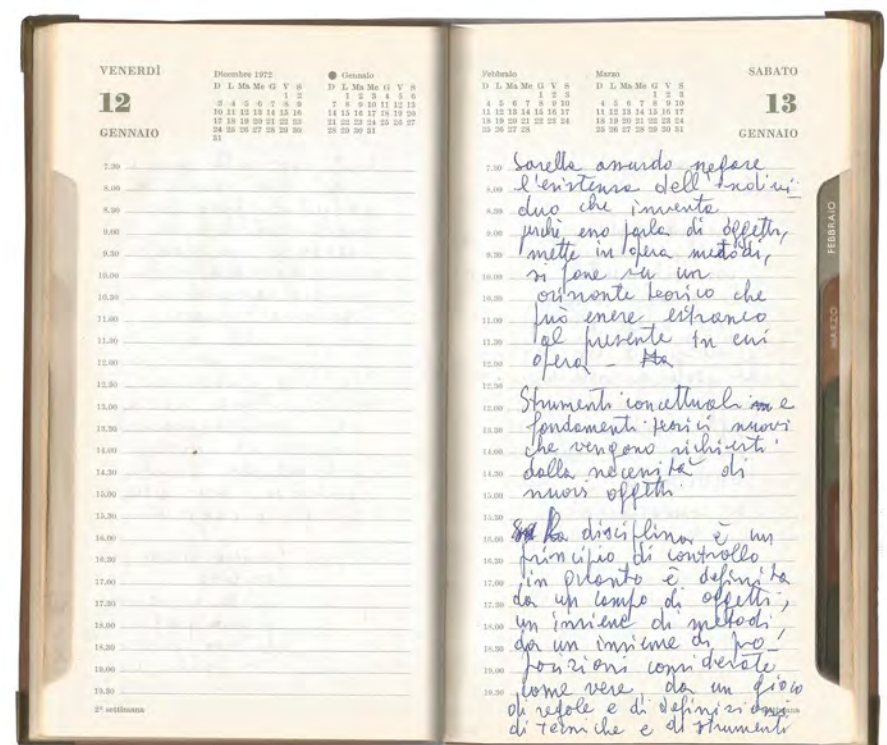 VENERDÌ
12
GENNAIO
Dicembre 1972
D L Ma Me G V S
1 2
3 4 5 6 7 8 9
10 11 12 13 14 15 16
17 18 19 20 21 22 23
24 25 26 27 28 29 30
31
Gennaio
D L Ma Me G V S
1 2 3 4 5 6
7 8 9 10 11 12 13
14 15 16 17 18 19 20
21 22 23 24 25 26 27
28 29 30 31
7.30
8.00
8.30
9.00
9.30
10.00
10.30
11.00
11.30
12.00
12.30
13.00
13.30
14.00
14.30
15.00
15.30
16.00
16.30
17.00
17.30
18.00
18.30
19.00
19.30
2ª settimana
Febbraio
D L Ma Me G V S
1 2 3
4 5 6 7 8 9 10
11 12 13 14 15 16 17
18 19 20 21 22 23 24
25 26 27 28
Marzo
D L Ma Me G V S
1 2 3
4 5 6 7 8 9 10
11 12 13 14 15 16 17
18 19 20 21 22 23 24
25 26 27 28 29 30 31
SABATO
13
GENNAIO
7.30 Sarebbe assurdo negare
8.00 l'esistenza dell'indivi
8.30 duo che inventa
9.00 perché esso parla di oggetti,
9.30 mette in opera metodi,
10.00 si pone su un
10.30 orizzonte teorico che
11.00 può essere estraneo
11.30 al presente in cui
12.00 opera - Ma
12.30
13.00 Strumenti concettuali e
13.30 fondamenti teorici nuovi
14.00 che vengono richiesti
14.30 dalla necessità di
15.00 nuovi oggetti
15.30
16.00 La disciplina è un
16.30 principio di controllo
17.00 in quanto è definita
17.30 da un campo di oggetti,
18.00 un insieme di metodi,
18.30 da un insieme di pro-
19.00 posizioni considerate
19.30 come vere, da un gioco
di regole e di definizioni,
di tecniche e di strumenti
FEBBRAIO
MARZO